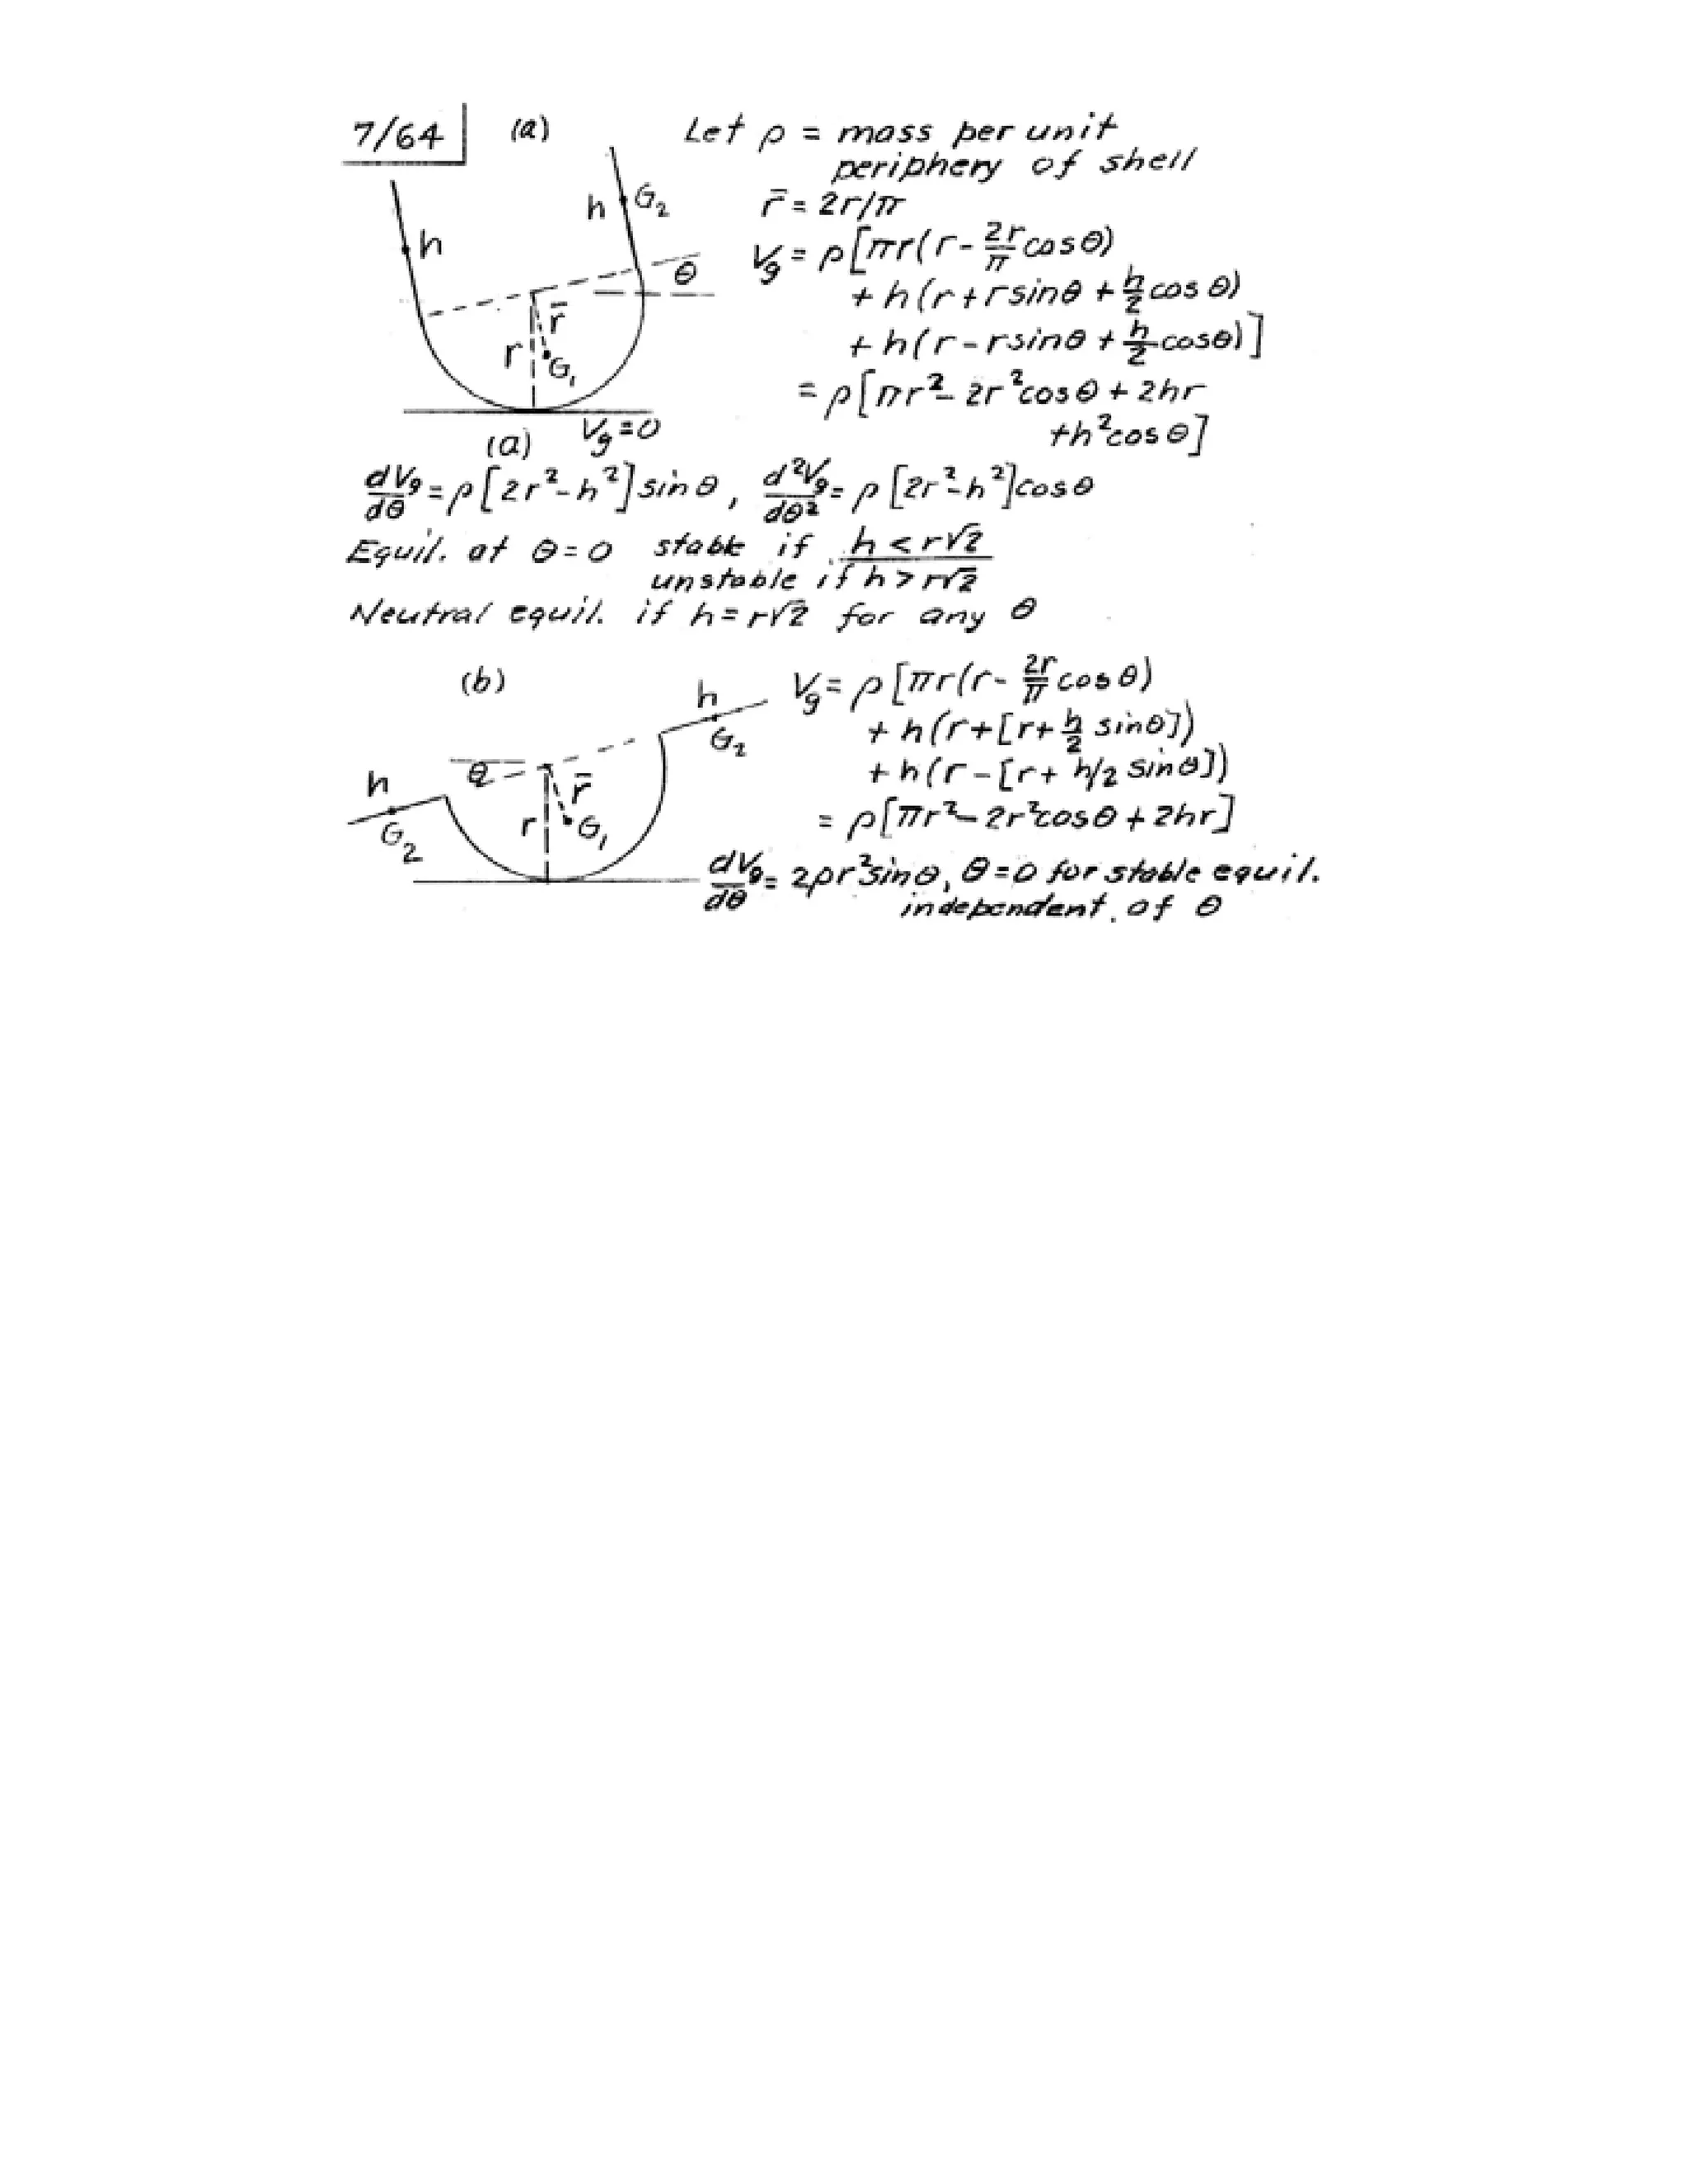 7/64 (a) Let ρ = mass per unit
periphery of shell
h G₂ r̄ = 2r/π
h V_g = ρ[πr(r - 2r/π cos θ)
θ + h(r + r sin θ + h/2 cos θ)
r̄ r G₁ + h(r - r sin θ + h/2 cos θ)]
= ρ[πr² - 2r² cos θ + 2hr
(a) V_g = 0 + h² cos θ]
dV_g/dθ = ρ[2r² - h²] sin θ, d²V_g/dθ² = ρ[2r² - h²] cos θ
Equil. at θ = 0 stable if h < r√2
unstable if h > r√2
Neutral equil. if h = r√2 for any θ
(b) h V_g = ρ[πr(r - 2r/π cos θ)
G₂ + h(r + [r + h/2 sin θ])
h θ r̄ + h(r - [r + h/2 sin θ])
G₂ r G₁ = ρ[πr² - 2r² cos θ + 2hr]
dV_g/dθ = 2ρr² sin θ, θ = 0 for stable equil.
independent of θ